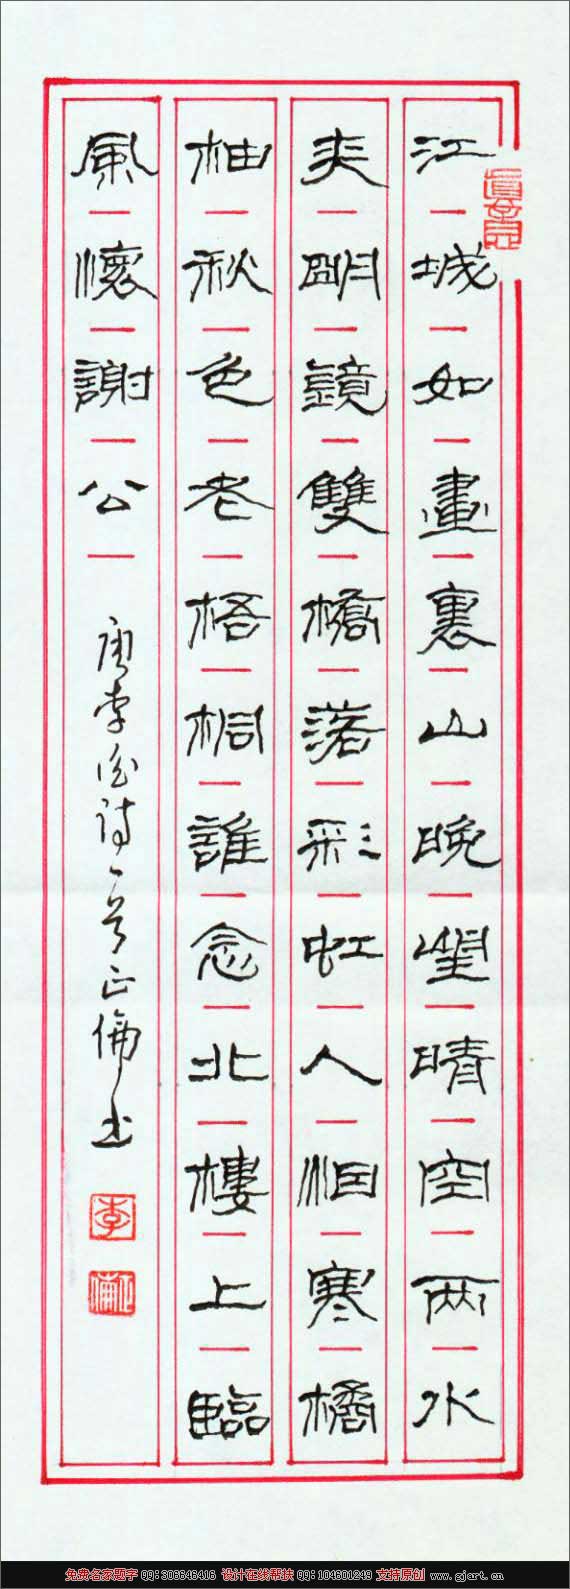 江城如畫裏山晚望晴空兩水
夾明鏡雙橋落彩虹人煙寒橘
柚秋色老梧桐誰念北樓上臨
風懷謝公
唐李白詩一首正倫书
李
免费名家题字 QQ:306846416 设计在线帮扶 QQ:104601249 支持原创 www.gjart.cn